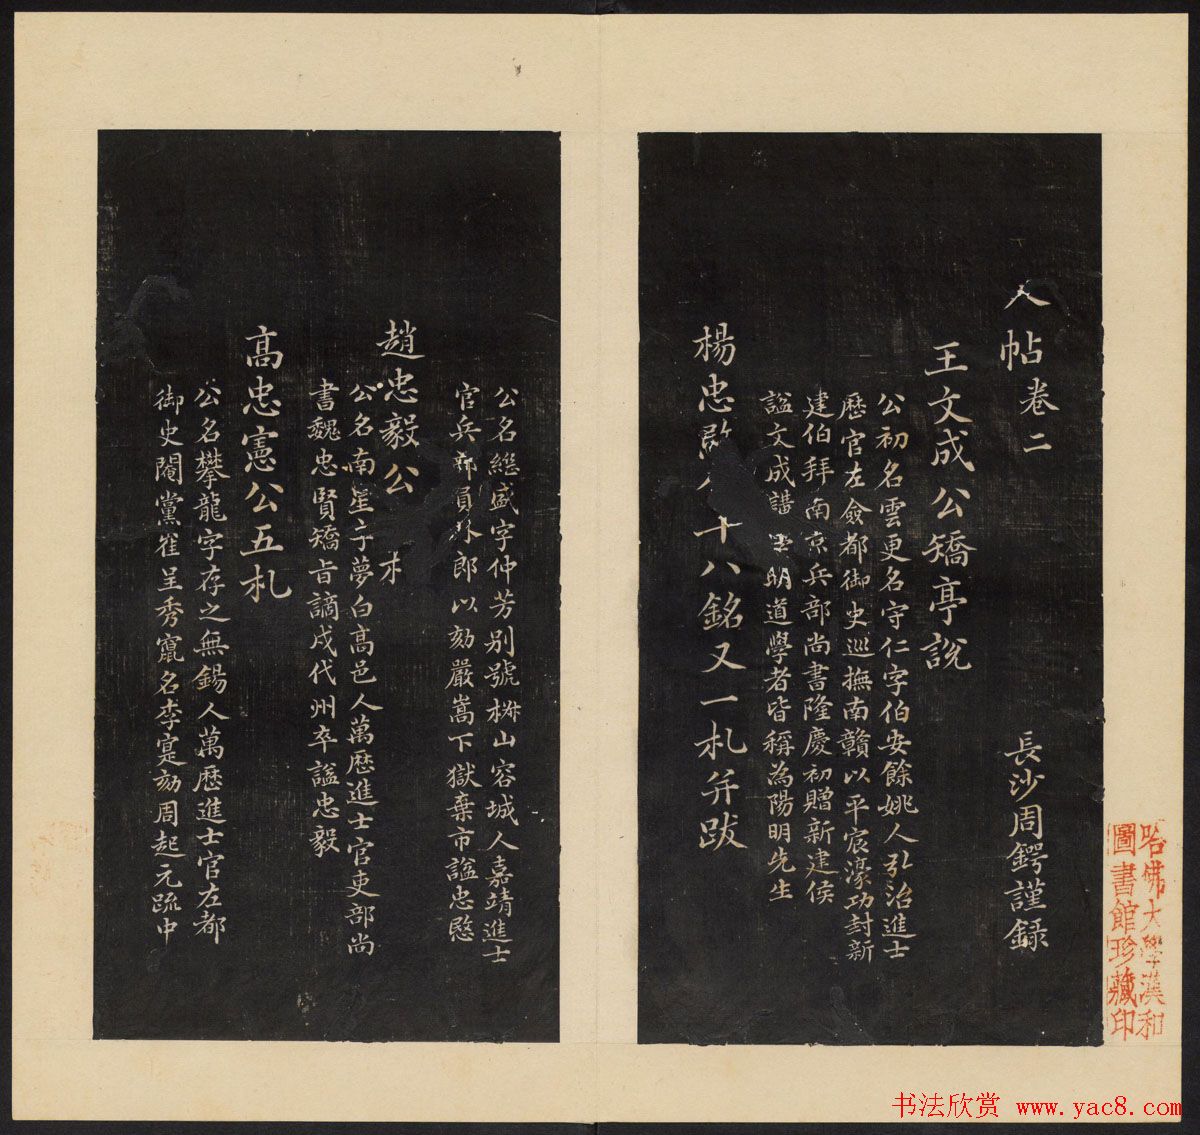 人帖卷二
長沙周鍔謹録
王文成公矯亭說
公初名雲更名守仁字伯安餘姚人弘治進士
歷官左僉都御史巡撫南贛以平宸濠功封新
建伯拜南京兵部尚書隆慶初贈新建侯
諡文成講學明道學者皆稱為陽明先生
楊忠愍公十八銘又一札并跋
公名繼盛字仲芳别號椒山容城人嘉靖進士
官兵部員外郎以劾嚴嵩下獄棄市諡忠愍
趙忠毅公 札
公名南星字夢白高邑人萬歷進士官吏部尚
書魏忠賢矯旨謫戍代州卒諡忠毅
高忠憲公五札
公名攀龍字存之無錫人萬歷進士官左都
御史閹黨崔呈秀竄名李寔劾周起元疏中
哈佛大學漢和
圖書館珍藏印
书法欣赏 www.yac8.com